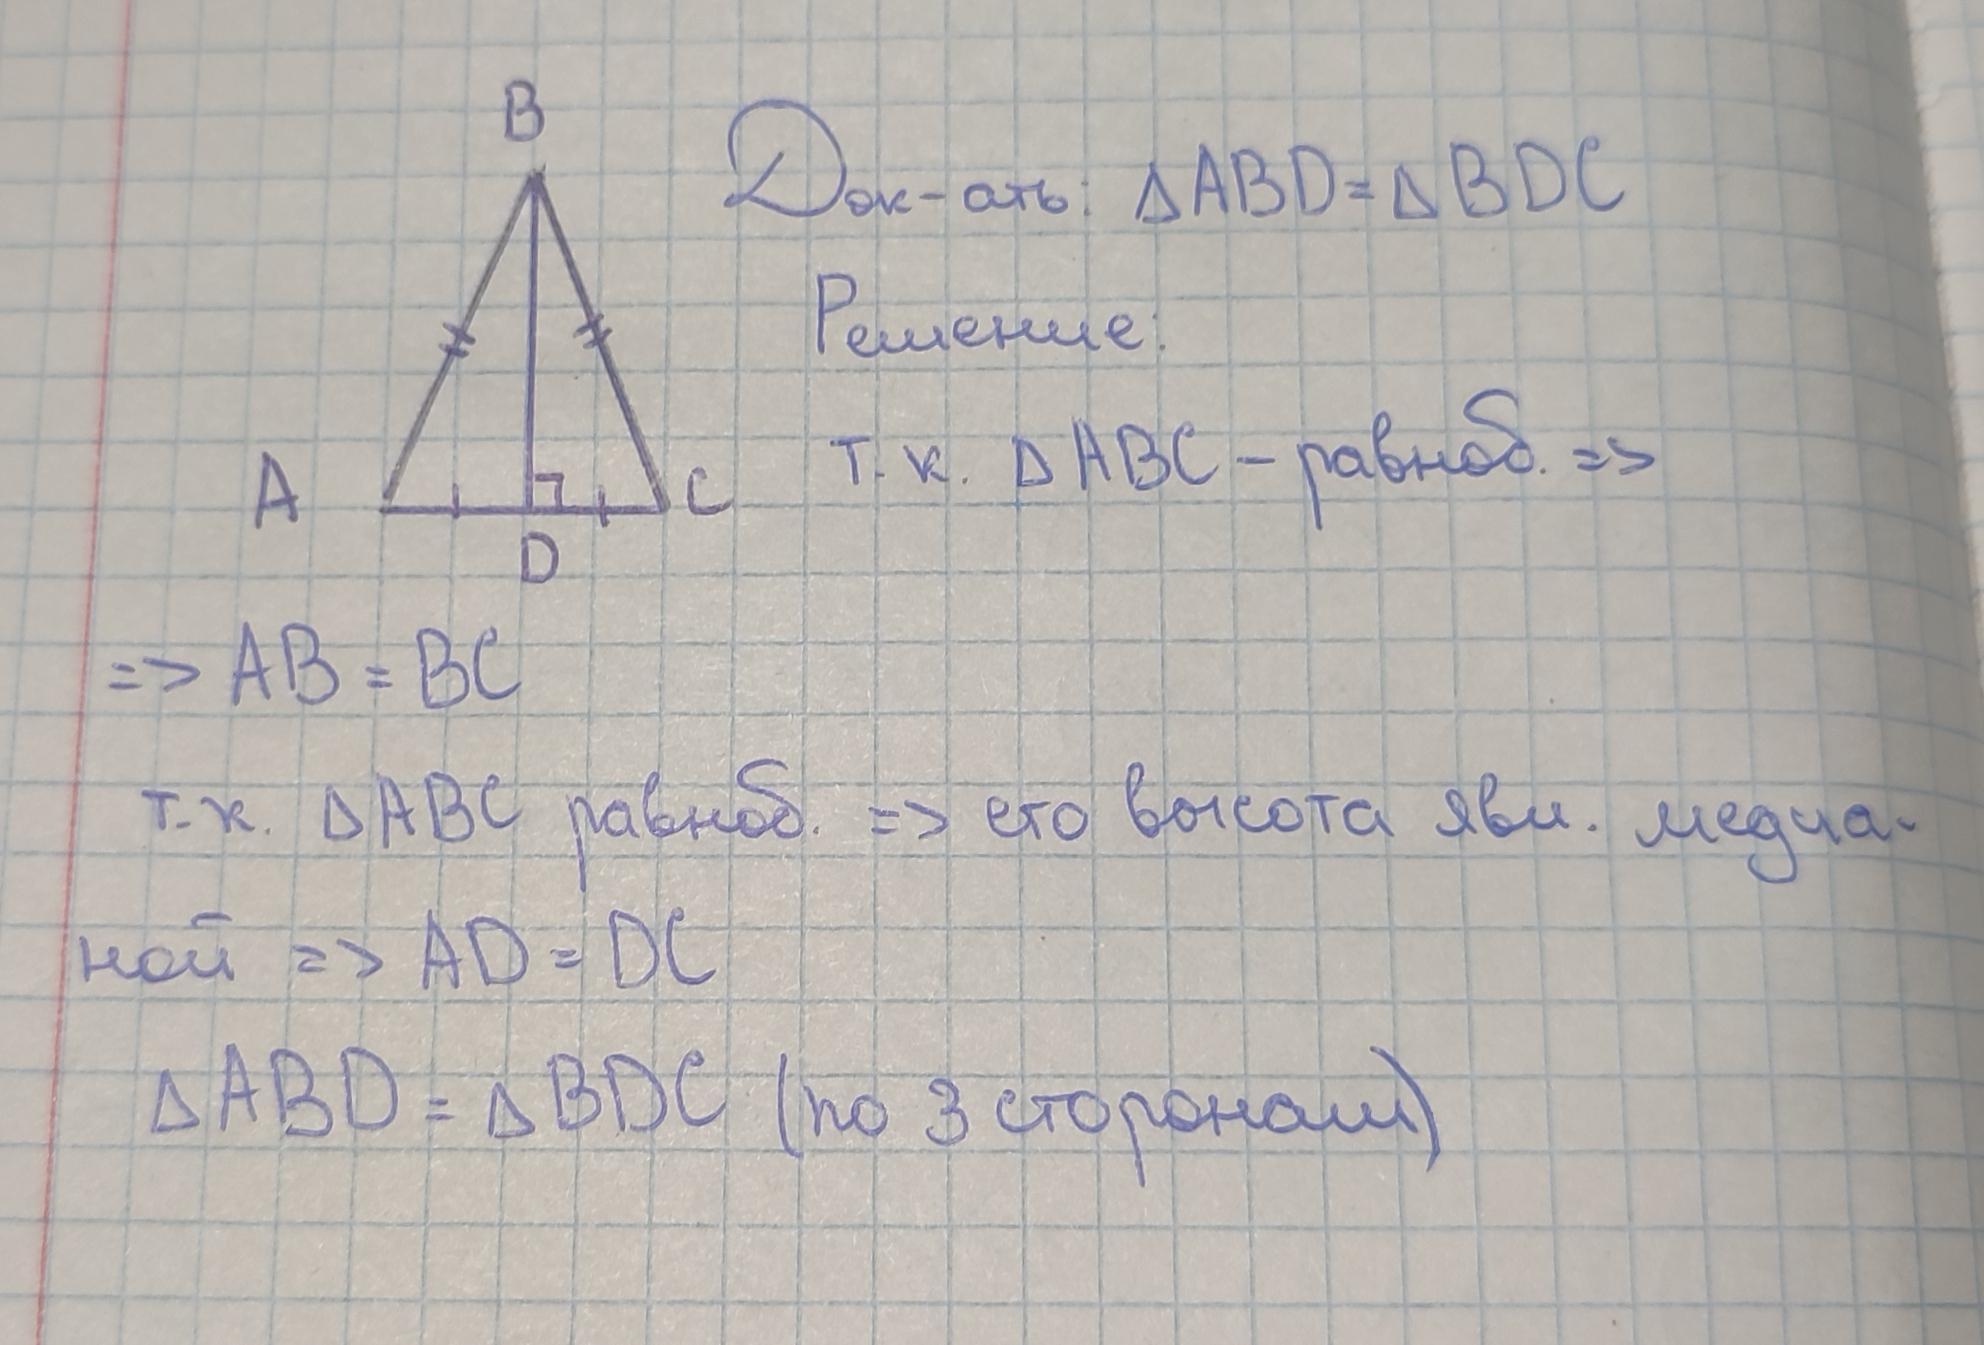 B
Док-ать: △ABD=△BDC
Решение:
A
C
D
т.к. △ABC – равноб. =>
=> AB = BC
т.к. △ABC равноб. => его высота явл. медиа-
ной => AD = DC
△ABD = △BDC (по 3 сторонам)